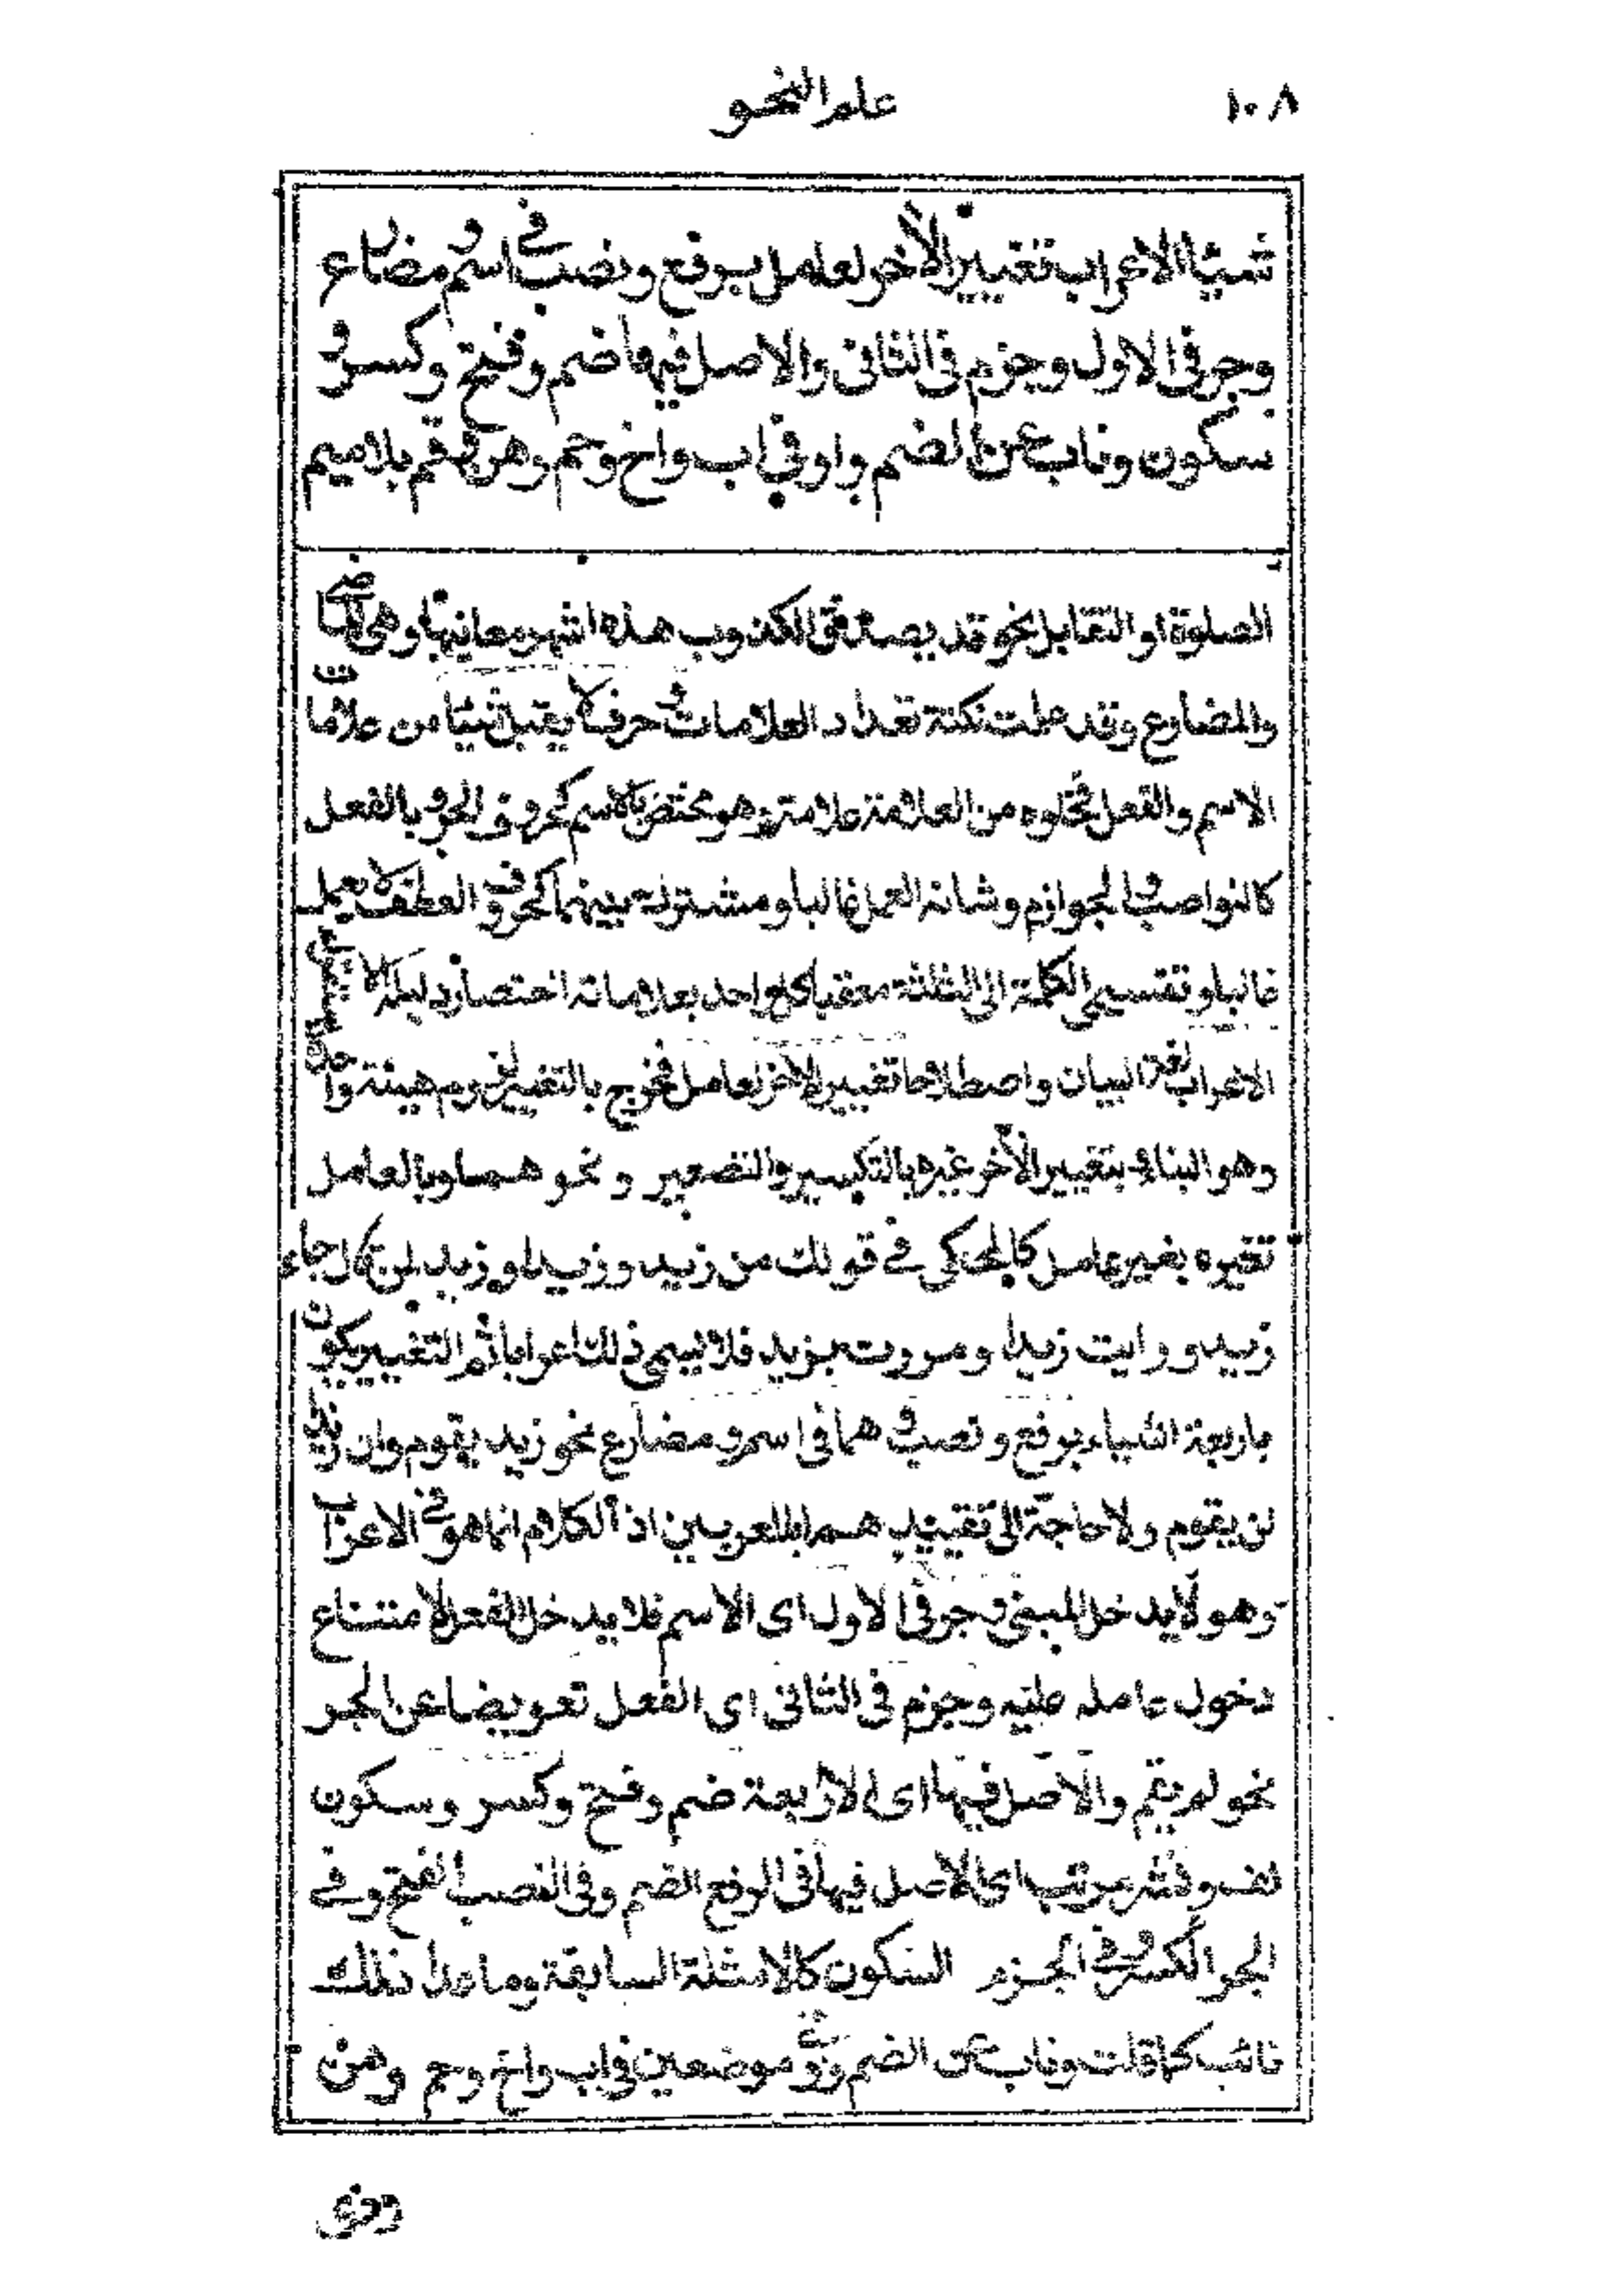 ١٠٨
علم النحو
شيئا الاعراب تغيير الآخر لعامل برفع ونصب في اسم و مضارع
وجر في الاول وجزم في الثاني والاصل فيها ضم وفتح وكسر و
سكون وناب عن الضم واو في اب واخ وحم وهن وفم بلا ميم
الصلوة او التقابل نحو قد يصدق الكذوب هذه اشهر معانيها وهي
والمضارع وقد علمت نكتة تعداد العلامات و حرف لا يقبل شيئا من علامات
الاسم والفعل فخلوه من العلامة علامة وهو مختص بالاسم كحروف الجر و بالفعل
كالنواصب و الجوازم وشانه العمل غالبا و مشترك بينهما كحروف العطف لا يعمل
غالبا وتقسيمي الكلمة الى الثلثة معقبا كل واحد بعلاماته اختصار
الاعراب لغة البيان واصطلاحا تغيير الآخر لعامل فخرج بالتغيير لزوم هيئة واحدة
وهو البناء و بتغيير الآخر غيره بالتكسير والتصغير و نحوهما وبالعامل
تغيره بغير عامل كالمحكى في قولك من زيد و زيدا و زيد لمن قال جاء
زيد و رايت زيدا و مررت بزيد فلا يسمى ذلك اعرابا ثم التغيير يكون
باربعة اشياء برفع و نصب و هما في اسم و مضارع نحو زيد يقوم وان زيدا
لن يقوم ولا حاجة الى تقييدهما بالمعربين اذ الكلام انما هو في الاعراب
وهو لا يدخل المبني و جر في الاول اى الاسم فلا يدخل الفعل لامتناع
دخول عامله عليه وجزم في الثاني اى الفعل تعويضا عن الجر
نحو لم يقم والاصل فيها اى الاربعة ضم وفتح وكسر وسكون
لف ونشر مرتب اى الاصل فيها في الرفع الضم وفي النصب الفتح وفي
الجر الكسر و في الجزم السكون كالامثلة السابقة وما عدا ذلك
نائب كما قلت وناب عن الضم واو في موضعين في اب واخ وحم وهن